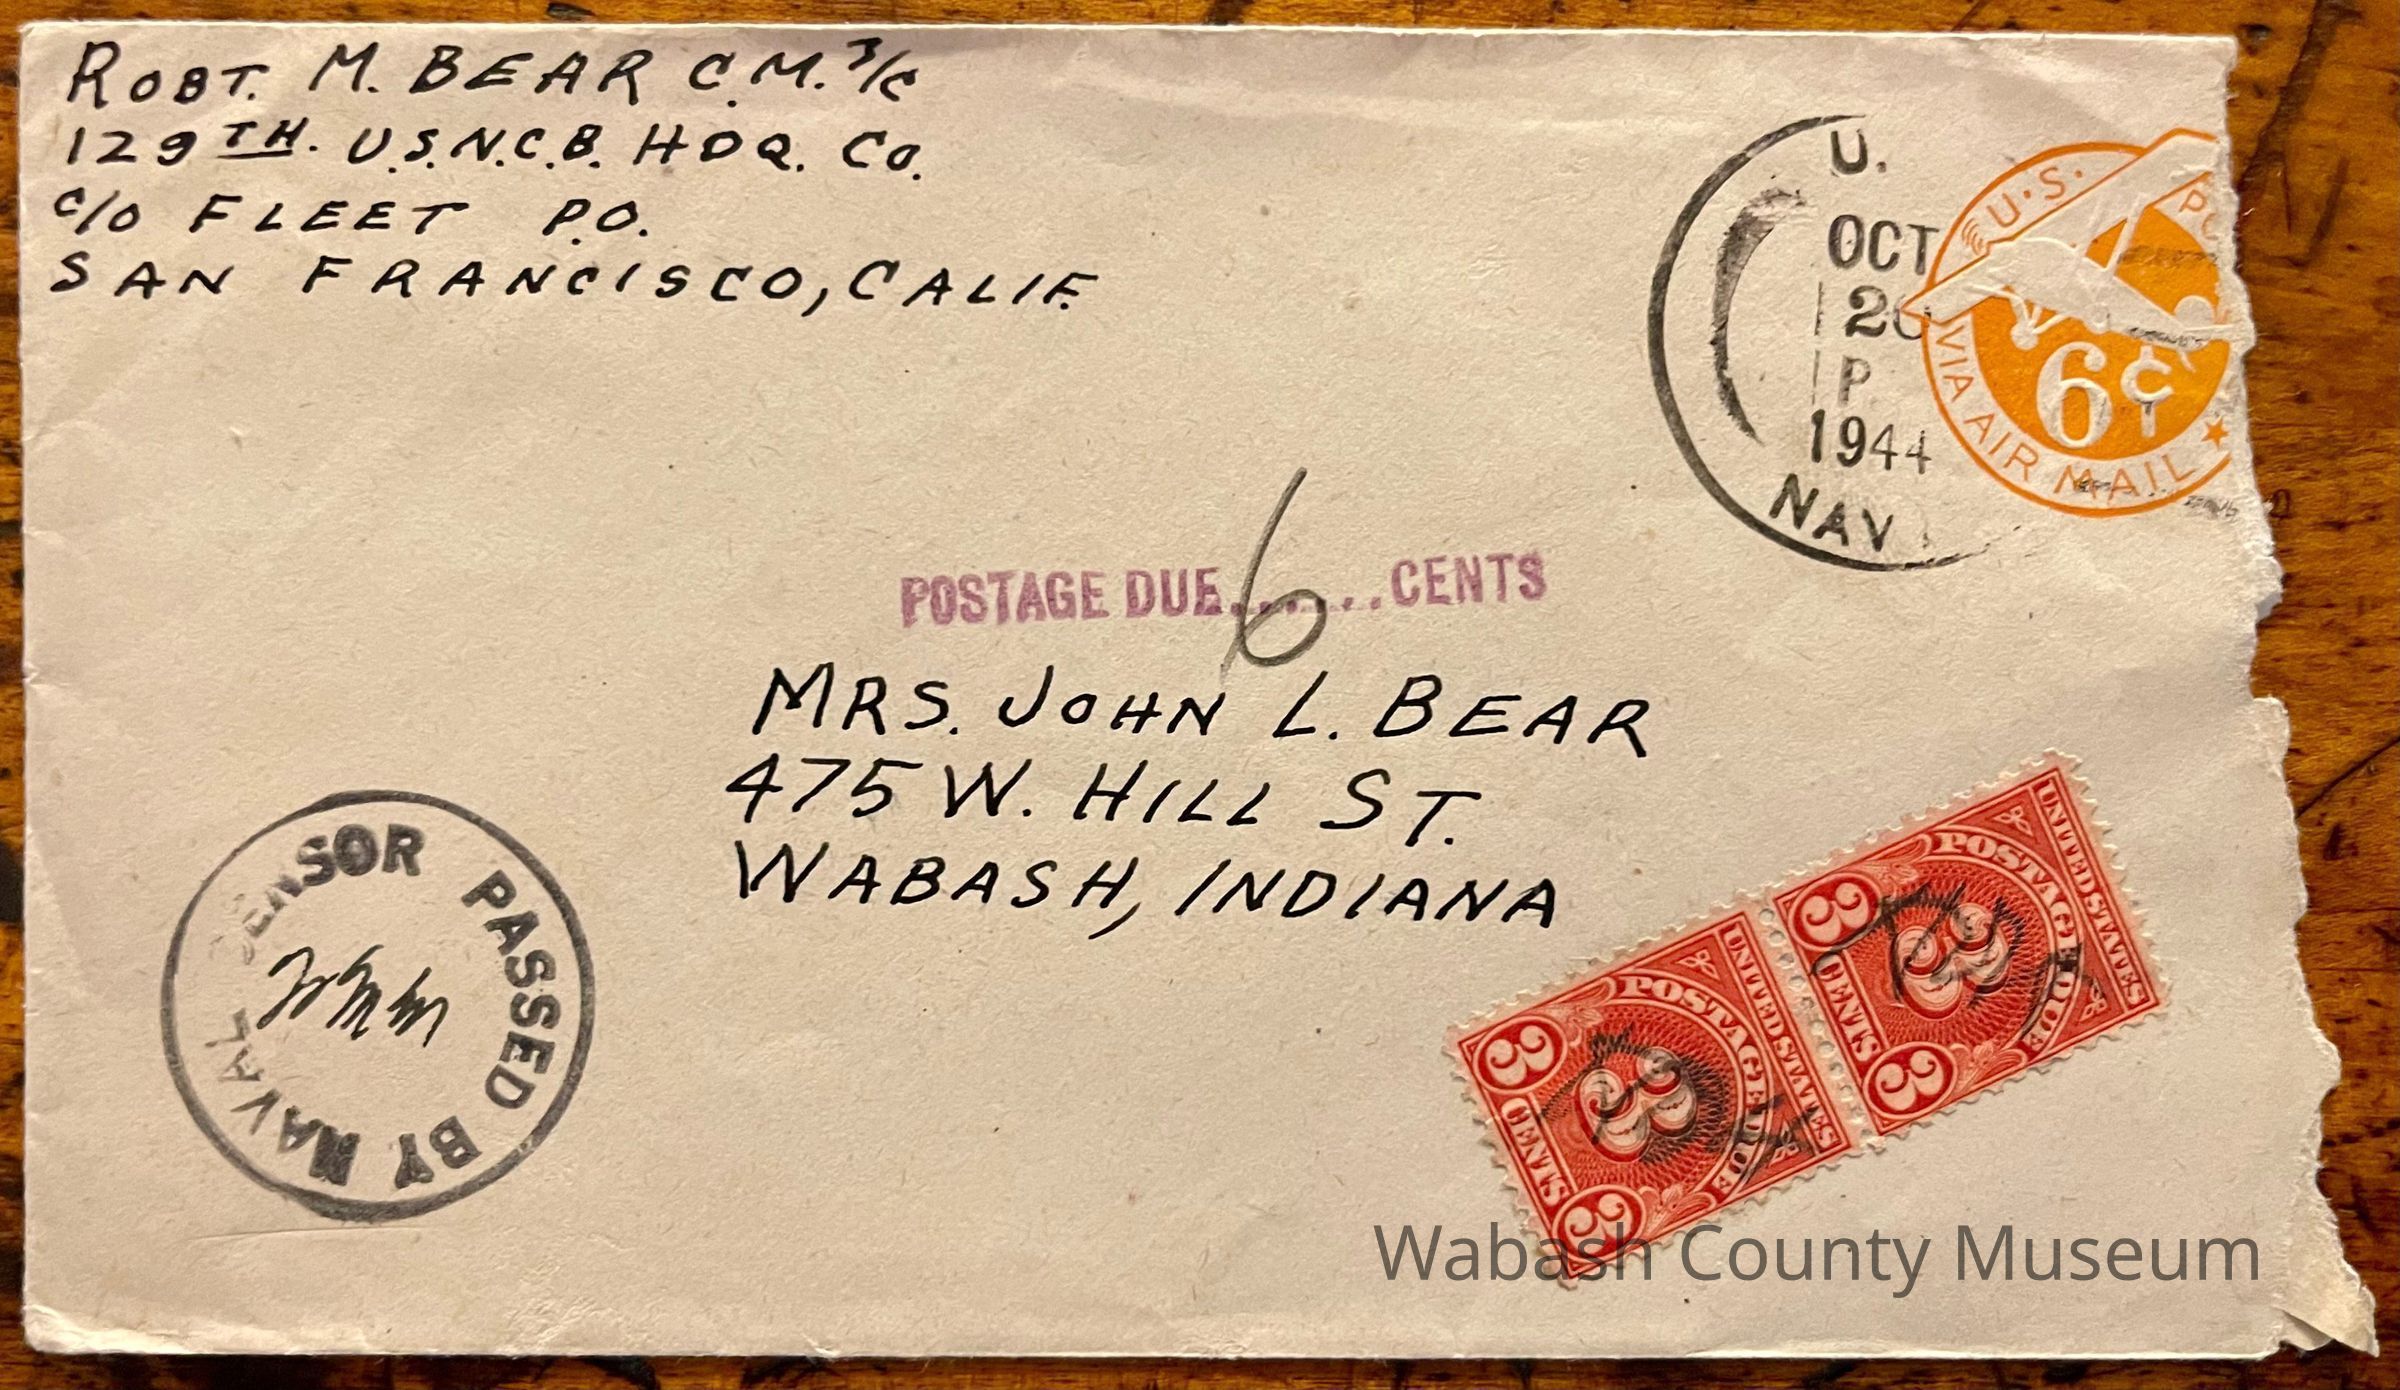 ROBT. M. BEAR C.M. 3/C
129TH. U.S.N.C.B. HDQ. CO.
C/O FLEET P.O.
SAN FRANCISCO, CALIF.
U.
OCT
20
P
1944
NAV
U.S. PO
VIA AIR MAIL
6¢
POSTAGE DUE 6 CENTS
MRS. JOHN L. BEAR
475 W. HILL ST.
WABASH, INDIANA
PASSED BY NAVAL CENSOR
UNITED STATES
POSTAGE DUE
3 3 3
CENTS
UNITED STATES
POSTAGE DUE
3 3 3
CENTS
Wabash County Museum